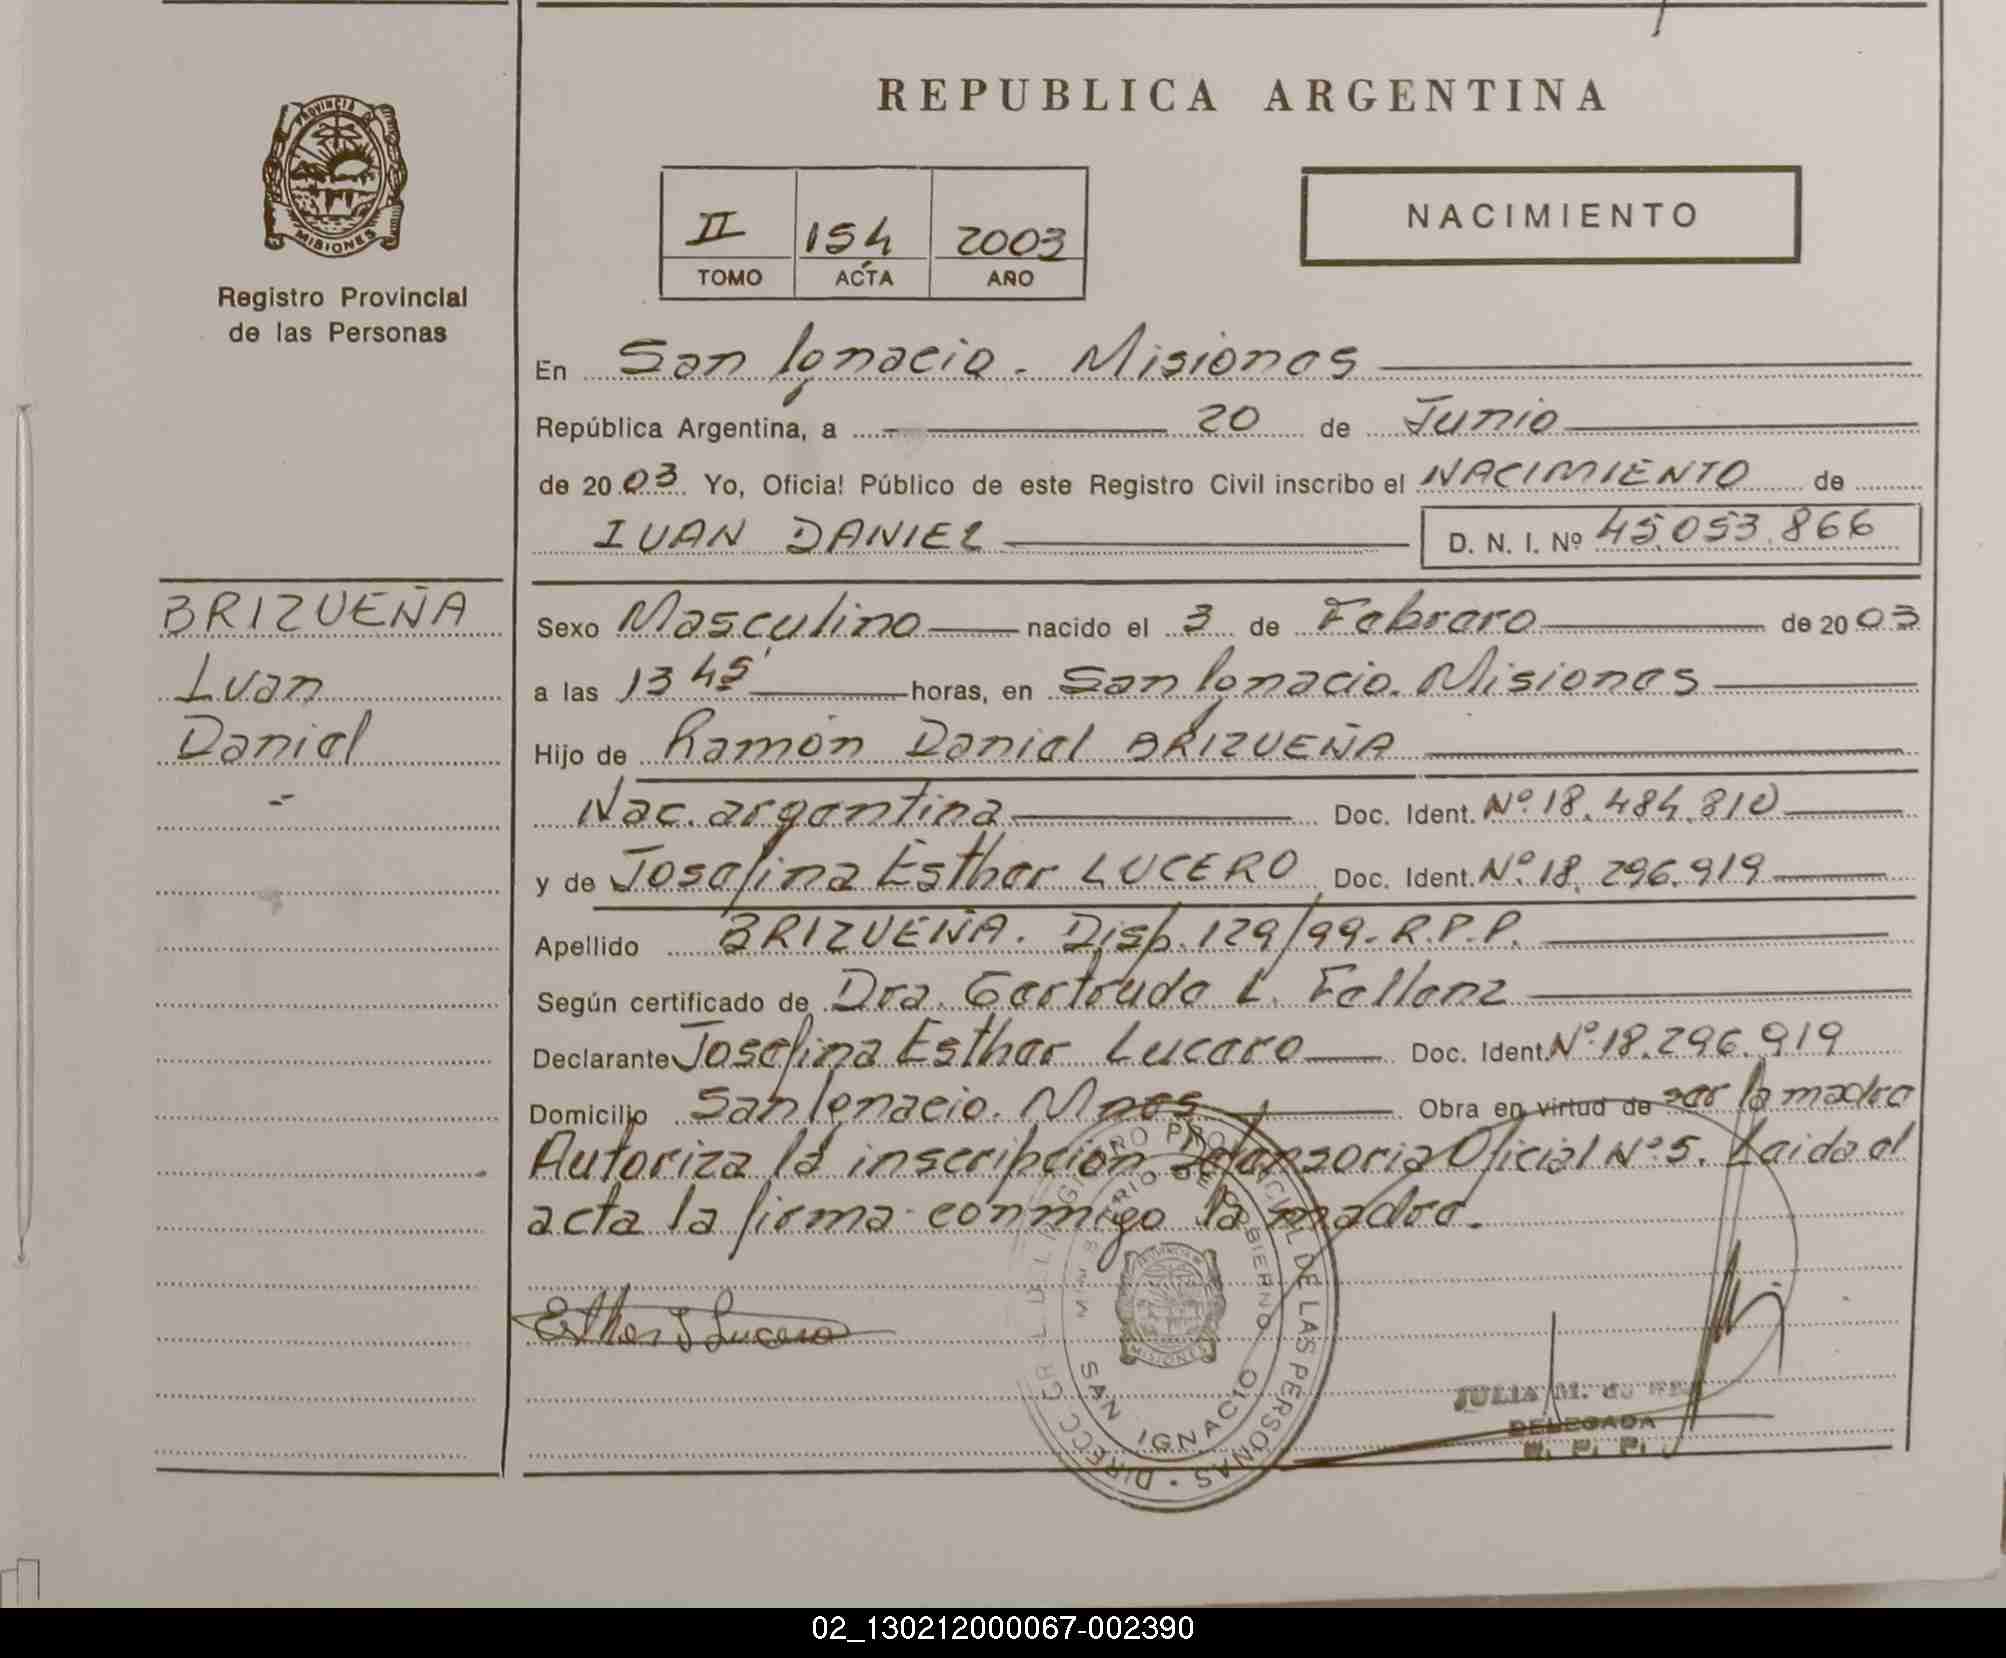 REPUBLICA ARGENTINA
PROVINCIA DE
MISIONES
Registro Provincial
de las Personas
II 154 2003
TOMO ACTA AÑO
NACIMIENTO
En San Ignacio. Misiones
República Argentina, a 20 de Junio
de 2003 Yo, Oficial Público de este Registro Civil inscribo el NACIMIENTO de
IVAN DANIEL D. N. I. Nº 45.053.866
BRIZUEÑA
Ivan
Daniel
Sexo Masculino nacido el 3 de Febrero de 2003
a las 13 45' horas, en San Ignacio. Misiones
Hijo de Ramón Daniel BRIZUEÑA
Nac. argentina Doc. Ident. Nº 18.484.810
y de Josefina Esther LUCERO Doc. Ident. Nº 18.296.919
Apellido BRIZUEÑA. Disp. 129/99-R.P.P.
Según certificado de Dra. Gertrude L. Fellenz
Declarante Josefina Esther Lucero Doc. Ident. Nº 18.296.919
Domicilio San Ignacio. Mnes Obra en virtud de ser la madre
Autoriza la inscripción Defensoria Oficial Nº 5. Leida el
acta la firma conmigo la madre.
Esther J Lucero
REGISTRO PROVINCIAL DE LAS PERSONAS
MINISTERIO DE GOBIERNO
MISIONES
SAN IGNACIO
JULIA M. de
DELEGADA
R. P. P.
02_130212000067-002390